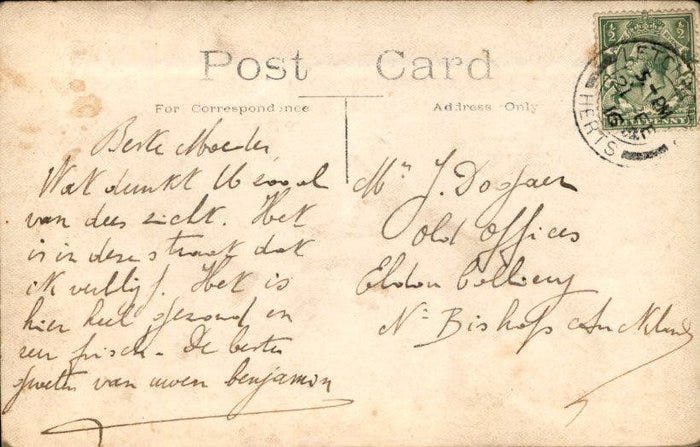 Post Card
For Correspondence
Address Only
½ ½
LETCH
5-PM
21 FE
16
HERTS
HALFPENNY
Beste Moeder,
Wat dunkt U zooal
van dees zicht. Het
is in deze straat dat
ik verblijf. Het is
hier heel gezond en
zeer frisch - De beste
groeten van uwen benjamon
Mr J.
Old Offices
Eldon Colliery
Nr Bishops Auckland